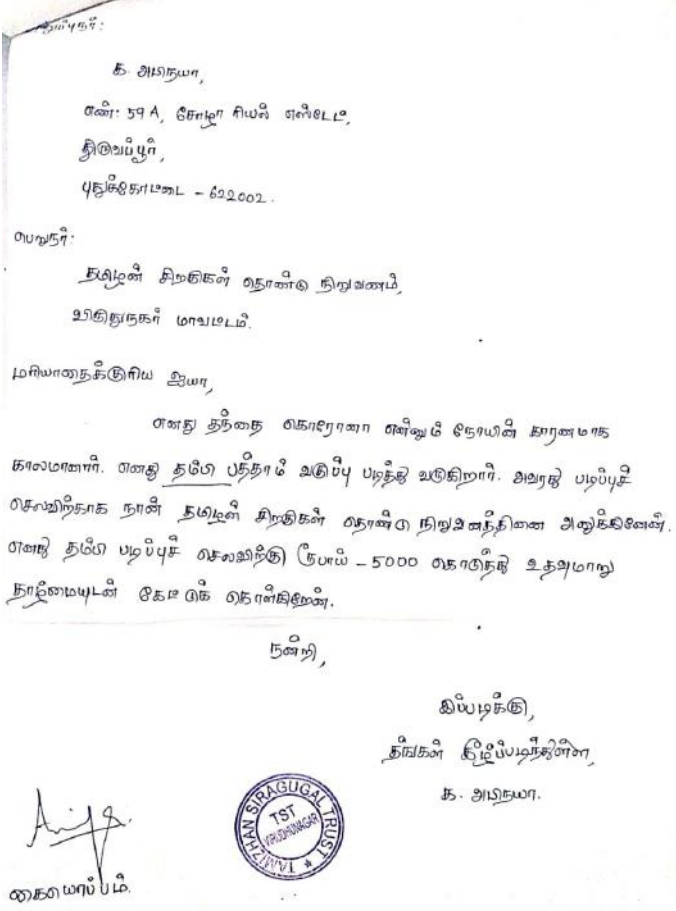 அனுப்புநர்:
க. அபிநயா,
எண்: 59 A, சோழா ரியல் எஸ்டேட்,
திருவப்பூர்,
புதுக்கோட்டை - 622002.
பெறுநர்:
தமிழன் சிறகுகள் தொண்டு நிறுவணம்,
விருதுநகர் மாவட்டம்.
மரியாதைக்குரிய ஐயா,
எனது தந்தை கொரோனா என்னும் நோயின் காரணமாக
காலமானார். எனது தம்பி பத்தாம் வகுப்பு படித்து வருகிறார். அவரது படிப்புச்
செலவிற்காக நான் தமிழன் சிறகுகள் தொண்டு நிறுவனத்தினை அனுக்கினேன்.
எனது தம்பி படிப்புச் செலவிற்கு ரூபாய் - 5000 கொடுத்து உதவுமாறு
தாழ்மையுடன் கேட்டுக் கொள்கிறேன்.
நன்றி,
இப்படிக்கு,
தங்கள் கீழ்ப்படிந்துள்ள,
க. அபிநயா.
TAMIZHAN SIRAGUGAL TRUST
TST
VIRUDHUNAGAR
கையொப்பம்.